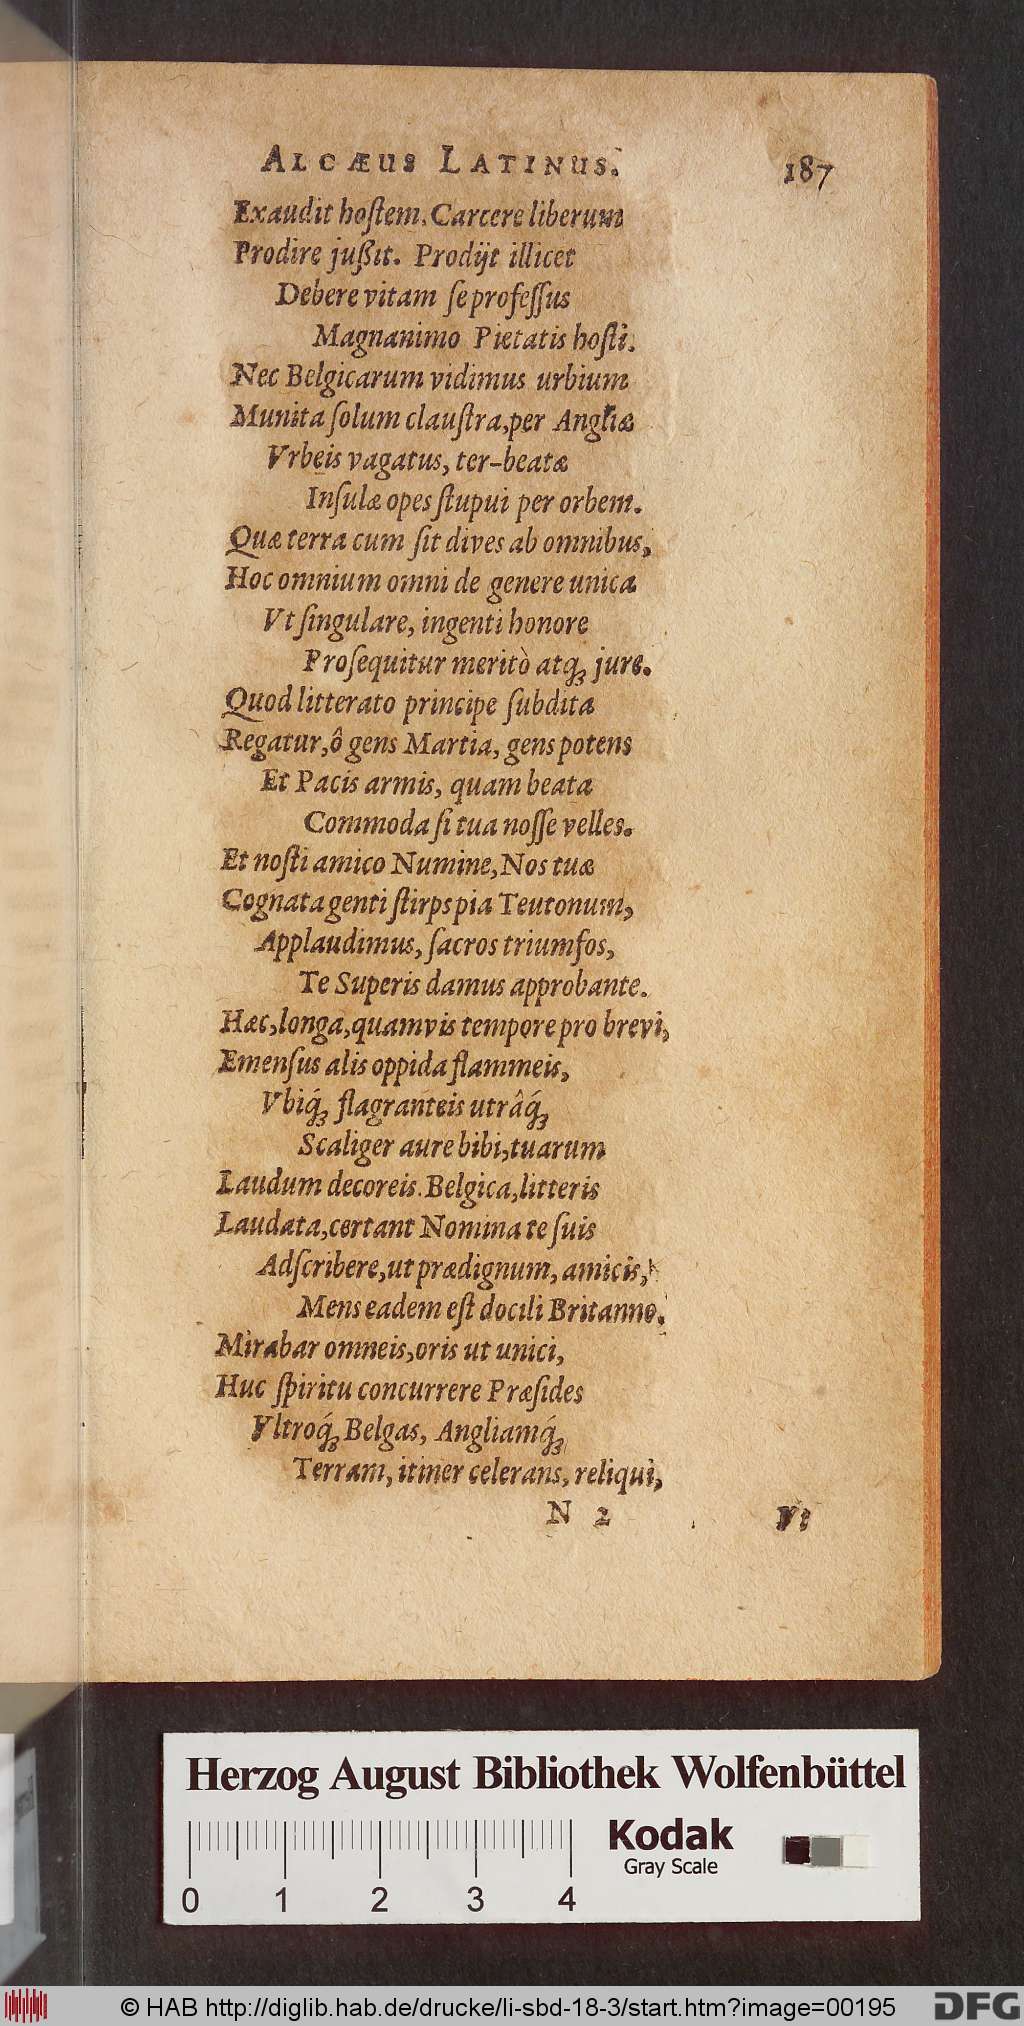 ALCÆUS LATINUS. 187
Exaudit hoſtem. Carcere liberum
Prodire jußit. Prodijt illicet
Debere vitam ſe profeſſus
Magnanimo Pietatis hoſti.
Nec Belgicarum vidimus urbium
Munita ſolum clauſtra, per Angliæ
Vrbeis vagatus, ter-beatæ
Inſulæ opes ſtupui per orbem.
Quæ terra cum ſit dives ab omnibus,
Hoc omnium omni de genere unica
Vt ſingulare, ingenti honore
Proſequitur meritò atq; jure.
Quod litterato principe ſubdita
Regatur, ô gens Martia, gens potens
Et Pacis armis, quam beata
Commoda ſi tua noſſe velles.
Et noſti amico Numine, Nos tuæ
Cognata genti ſtirps pia Teutonum,
Applaudimus, ſacros triumfos,
Te Superis damus approbante.
Hæc, longa, quamvis tempore pro brevi,
Emenſus alis oppida flammeis,
Vbiq́; flagranteis utrâq́;
Scaliger aure bibi, tuarum
Laudum decoreis. Belgica, litteris
Laudata, certant Nomina te ſuis
Adſcribere, ut prædignum, amicis,
Mens eadem eſt docili Britanno.
Mirabar omneis, oris ut unici,
Huc ſpiritu concurrere Præſides
Vltroq́; Belgas, Angliamq́;
Terram, itiner celerans, reliqui,
N 2 Vt
Herzog August Bibliothek Wolfenbüttel
Kodak
Gray Scale
0 1 2 3 4
© HAB http://diglib.hab.de/drucke/li-sbd-18-3/start.htm?image=00195 DFG